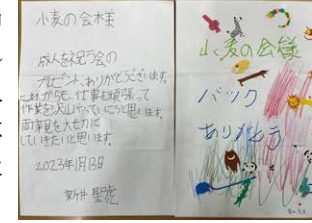 小麦の会様
成人を祝う会の
プレゼント、ありがとうございます。
これからも、仕事も頑張って
作業を沢山やっていこうと思います。
両親を大切に
していきたいと思います。
2023年1月13日
小麦の会様
バック
ありがとう